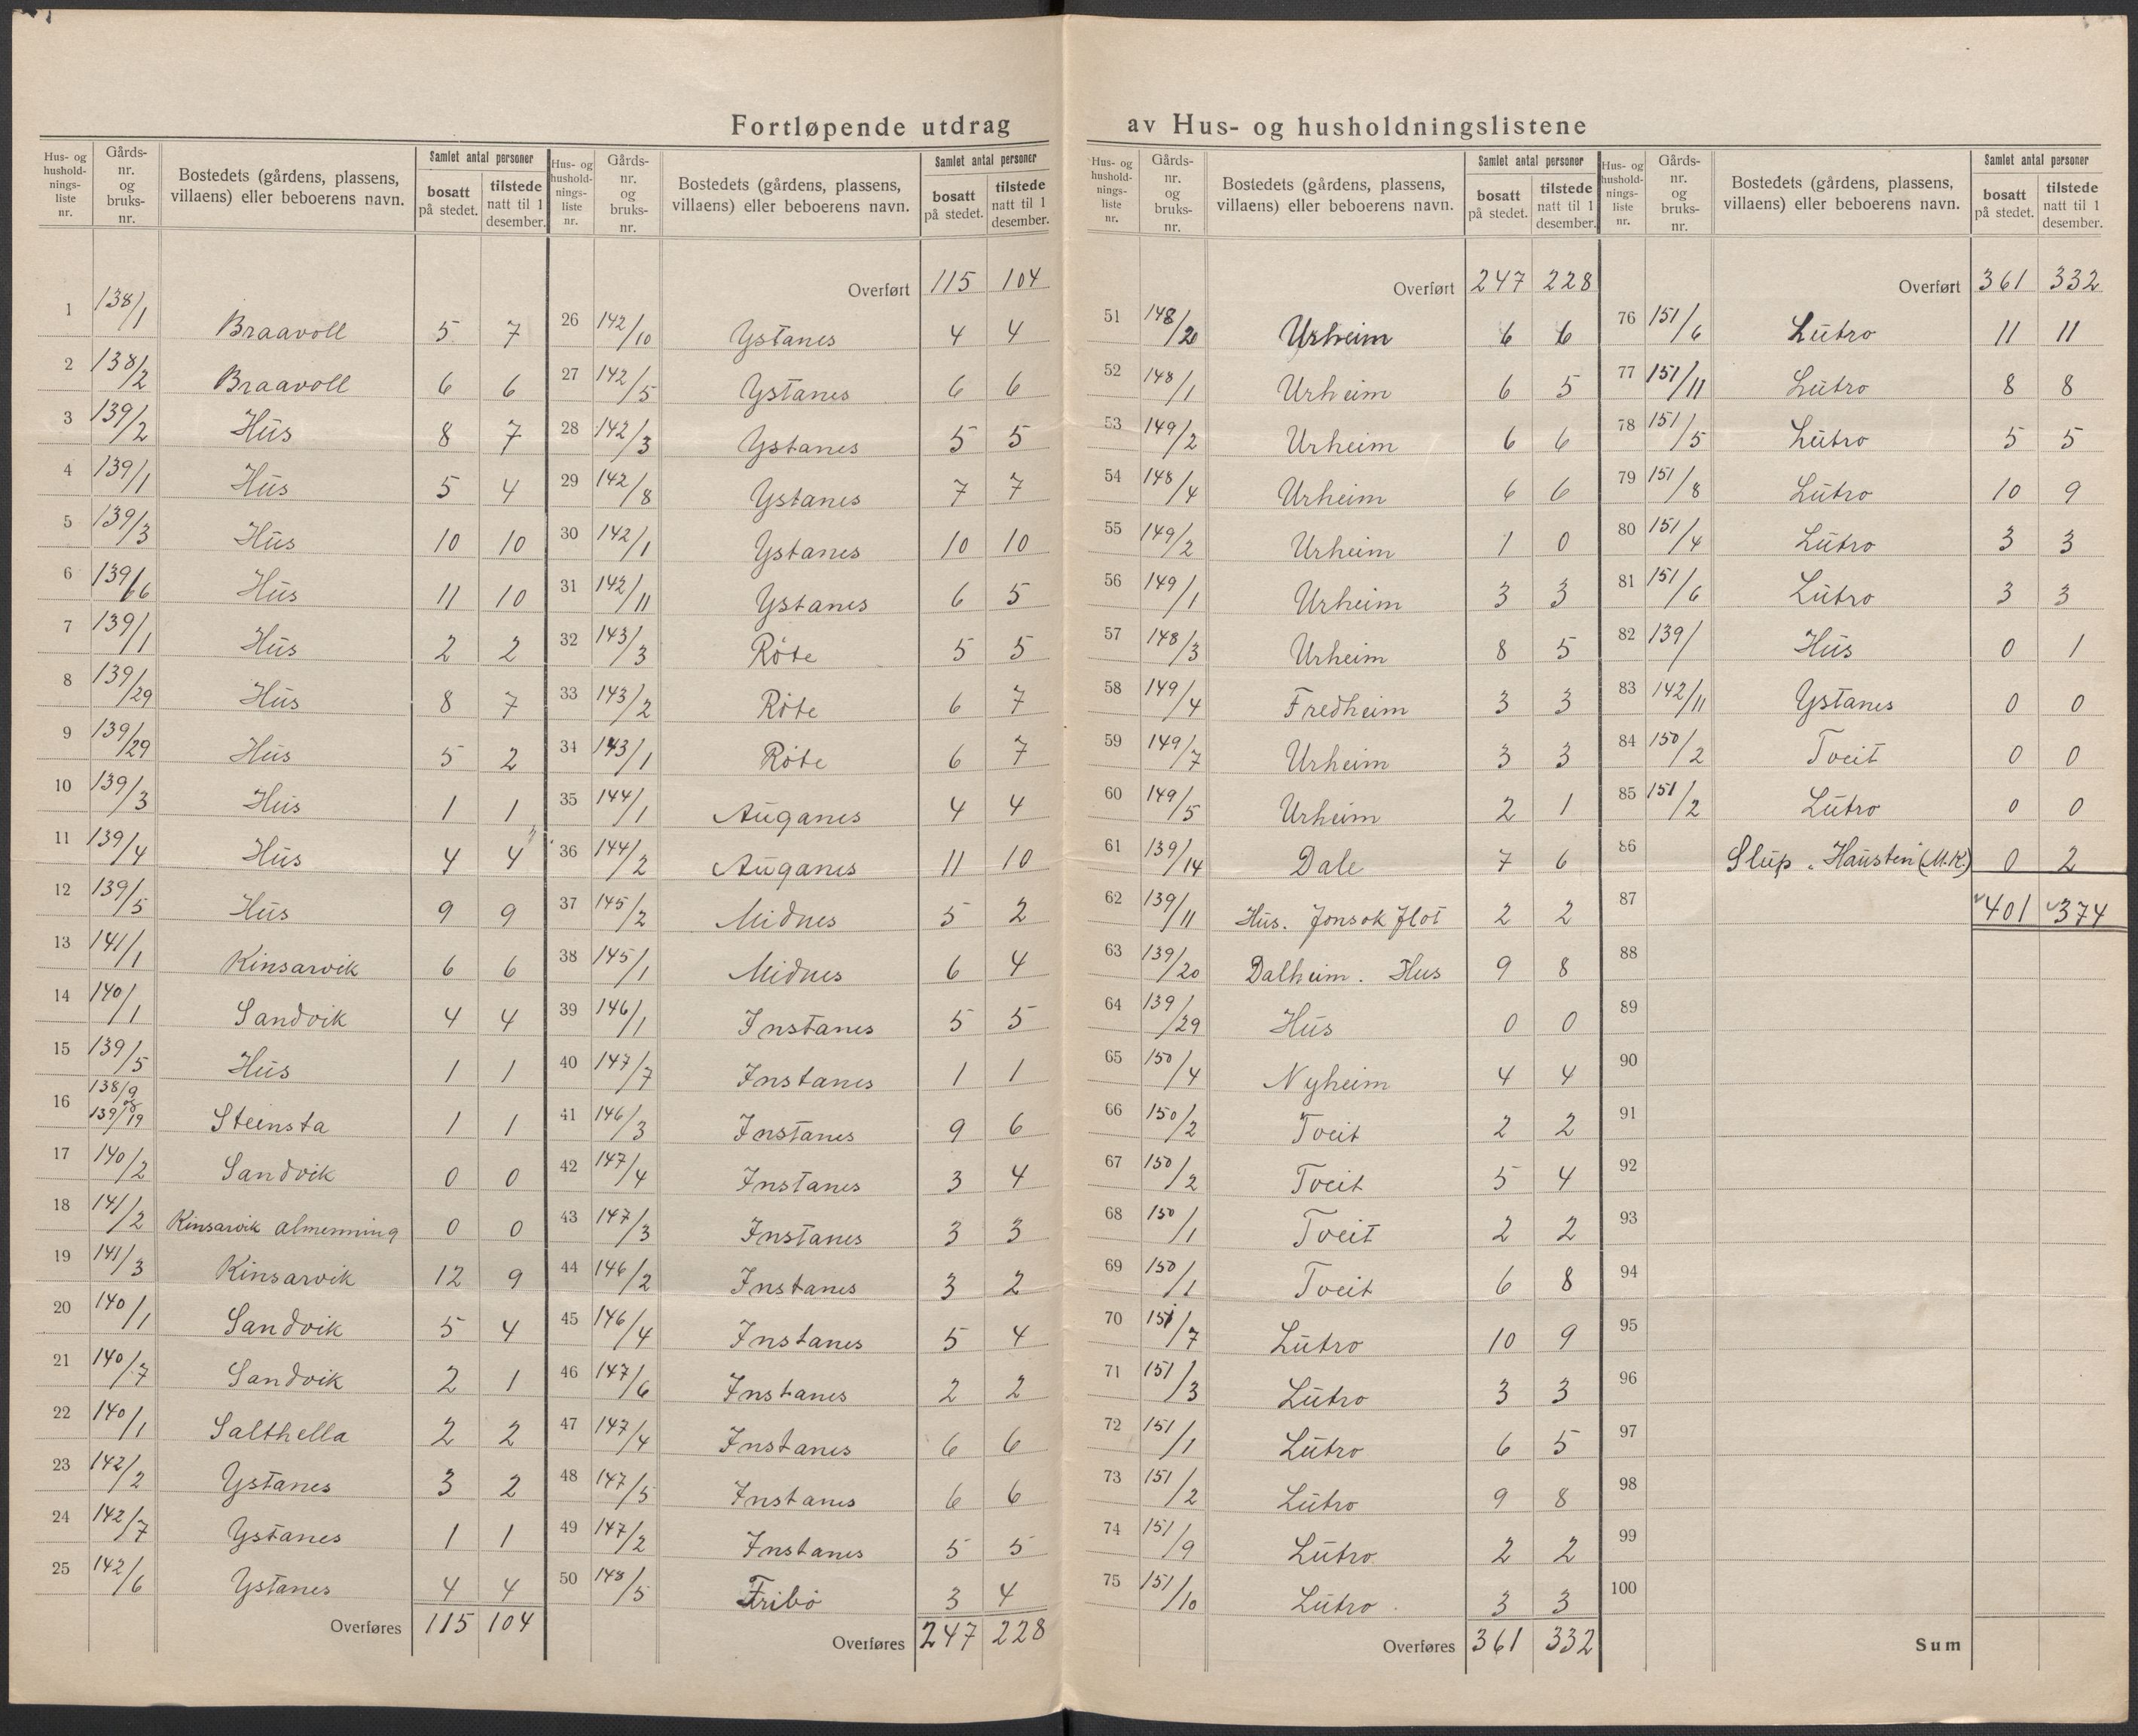 Fortløpende utdrag av Hus- og husholdningslistene
Hus- og husholdnings-liste nr. Gårds-nr. og bruks-nr. Bostedets (gårdens, plassens, villaens) eller beboerens navn. Samlet antal personer bosatt på stedet. tilstede natt til 1 desember.
1 138/1 Braavoll 5 7
2 138/2 Braavoll 6 6
3 139/2 Hus 8 7
4 139/1 Hus 5 4
5 139/3 Hus 10 10
6 139/66 Hus 11 10
7 139/1 Hus 2 2
8 139/29 Hus 8 7
9 139/29 Hus 5 2
10 139/3 Hus 1 1
11 139/4 Hus 4 4
12 139/5 Hus 9 9
13 141/1 Kinsarvik 6 6
14 140/1 Sandvik 4 4
15 139/5 Hus 1 1
16 138/9 og 139/19 Steinsta 1 1
17 140/2 Sandvik 0 0
18 141/2 Kinsarvik almenning 0 0
19 141/3 Kinsarvik 12 9
20 140/1 Sandvik 5 4
21 140/7 Sandvik 2 1
22 140/1 Salthella 2 2
23 142/2 Ystanes 3 2
24 142/7 Ystanes 1 1
25 142/6 Ystanes 4 4
Overføres 115 104
Hus- og husholdnings-liste nr. Gårds-nr. og bruks-nr. Bostedets (gårdens, plassens, villaens) eller beboerens navn. Samlet antal personer bosatt på stedet. tilstede natt til 1 desember.
Overført 115 104
26 142/10 Ystanes 4 4
27 142/5 Ystanes 6 6
28 142/3 Ystanes 5 5
29 142/8 Ystanes 7 7
30 142/1 Ystanes 10 10
31 142/11 Ystanes 6 5
32 143/3 Röte 5 5
33 143/2 Röte 6 7
34 143/1 Röte 6 7
35 144/1 Auganes 4 4
36 144/2 Auganes 11 10
37 145/2 Midnes 5 2
38 145/1 Midnes 6 4
39 146/1 Instanes 5 5
40 147/7 Instanes 1 1
41 146/3 Instanes 9 6
42 147/4 Instanes 3 4
43 147/3 Instanes 3 3
44 146/2 Instanes 3 2
45 146/4 Instanes 5 4
46 147/6 Instanes 2 2
47 147/4 Instanes 6 6
48 147/5 Instanes 6 6
49 147/2 Instanes 5 5
50 148/5 Fribo 3 4
Overføres 247 228
Hus- og husholdnings-liste nr. Gårds-nr. og bruks-nr. Bostedets (gårdens, plassens, villaens) eller beboerens navn. Samlet antal personer bosatt på stedet. tilstede natt til 1 desember.
Overført 247 228
51 148/20 Urheim 6 6
52 148/1 Urheim 6 5
53 149/2 Urheim 6 6
54 148/4 Urheim 6 6
55 149/2 Urheim 1 0
56 149/1 Urheim 3 3
57 148/3 Urheim 8 5
58 149/4 Fredheim 3 3
59 149/7 Urheim 3 3
60 149/5 Urheim 2 1
61 139/14 Dale 7 6
62 139/11 Hus. Jonsok flot 2 2
63 139/20 Dalheim. Hus 9 8
64 139/29 Hus 0 0
65 150/4 Nyheim 4 4
66 150/2 Tveit 2 2
67 150/2 Tveit 5 4
68 150/1 Tveit 2 2
69 150/1 Tveit 6 8
70 151/7 Lutro 10 9
71 151/3 Lutro 3 3
72 151/1 Lutro 6 5
73 151/2 Lutro 9 8
74 151/9 Lutro 2 2
75 151/10 Lutro 3 3
Overføres 361 332
Hus- og husholdnings-liste nr. Gårds-nr. og bruks-nr. Bostedets (gårdens, plassens, villaens) eller beboerens navn. Samlet antal personer bosatt på stedet. tilstede natt til 1 desember.
Overført 361 332
76 151/6 Lutro 11 11
77 151/11 Lutro 8 8
78 151/5 Lutro 5 5
79 151/8 Lutro 10 9
80 151/4 Lutro 3 3
81 151/6 Lutro 3 3
82 139/ Hus 0 1
83 142/11 Ystanes 0 0
84 150/2 Tveit 0 0
85 151/2 Lutro 0 0
86 Slup "Hausten" (M.K.) 0 2
87 401 374
88
89
90
91
92
93
94
95
96
97
98
99
100
Sum